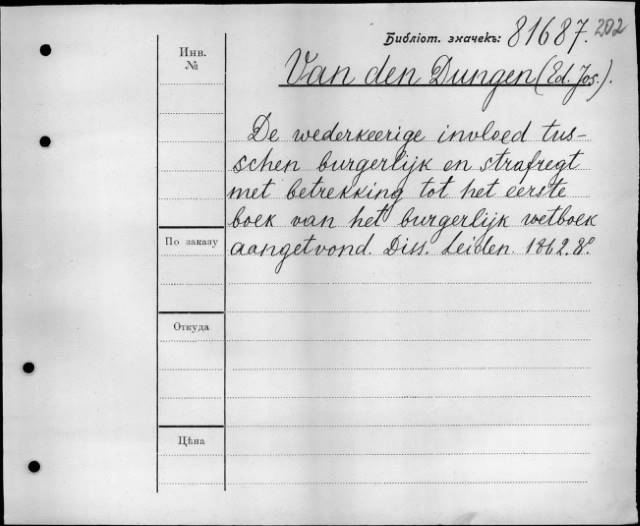 Библіот. значекъ: 81687. 202
Инв.
№
Van den Dungen (Ed. Jos.).
De wederkeerige invloed tus-
schen burgerlijk en strafregt
met betrekking tot het eerste
boek van het burgerlijk wetboek
aangetoond. Diss. Leiden. 1862. 8º.
По заказу
Откуда
Цѣна